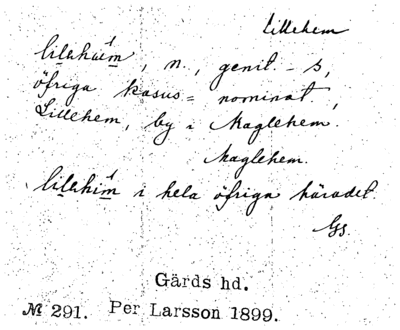 Lillehem
lilehæim, n., genit. -s,
öfriga kasus = nominat.,
Lillehem, by i Maglehem,
Maglehem.
lilehim i hela öfriga häradet
Gs.
Gärds hd.
№ 291. Per Larsson 1899.